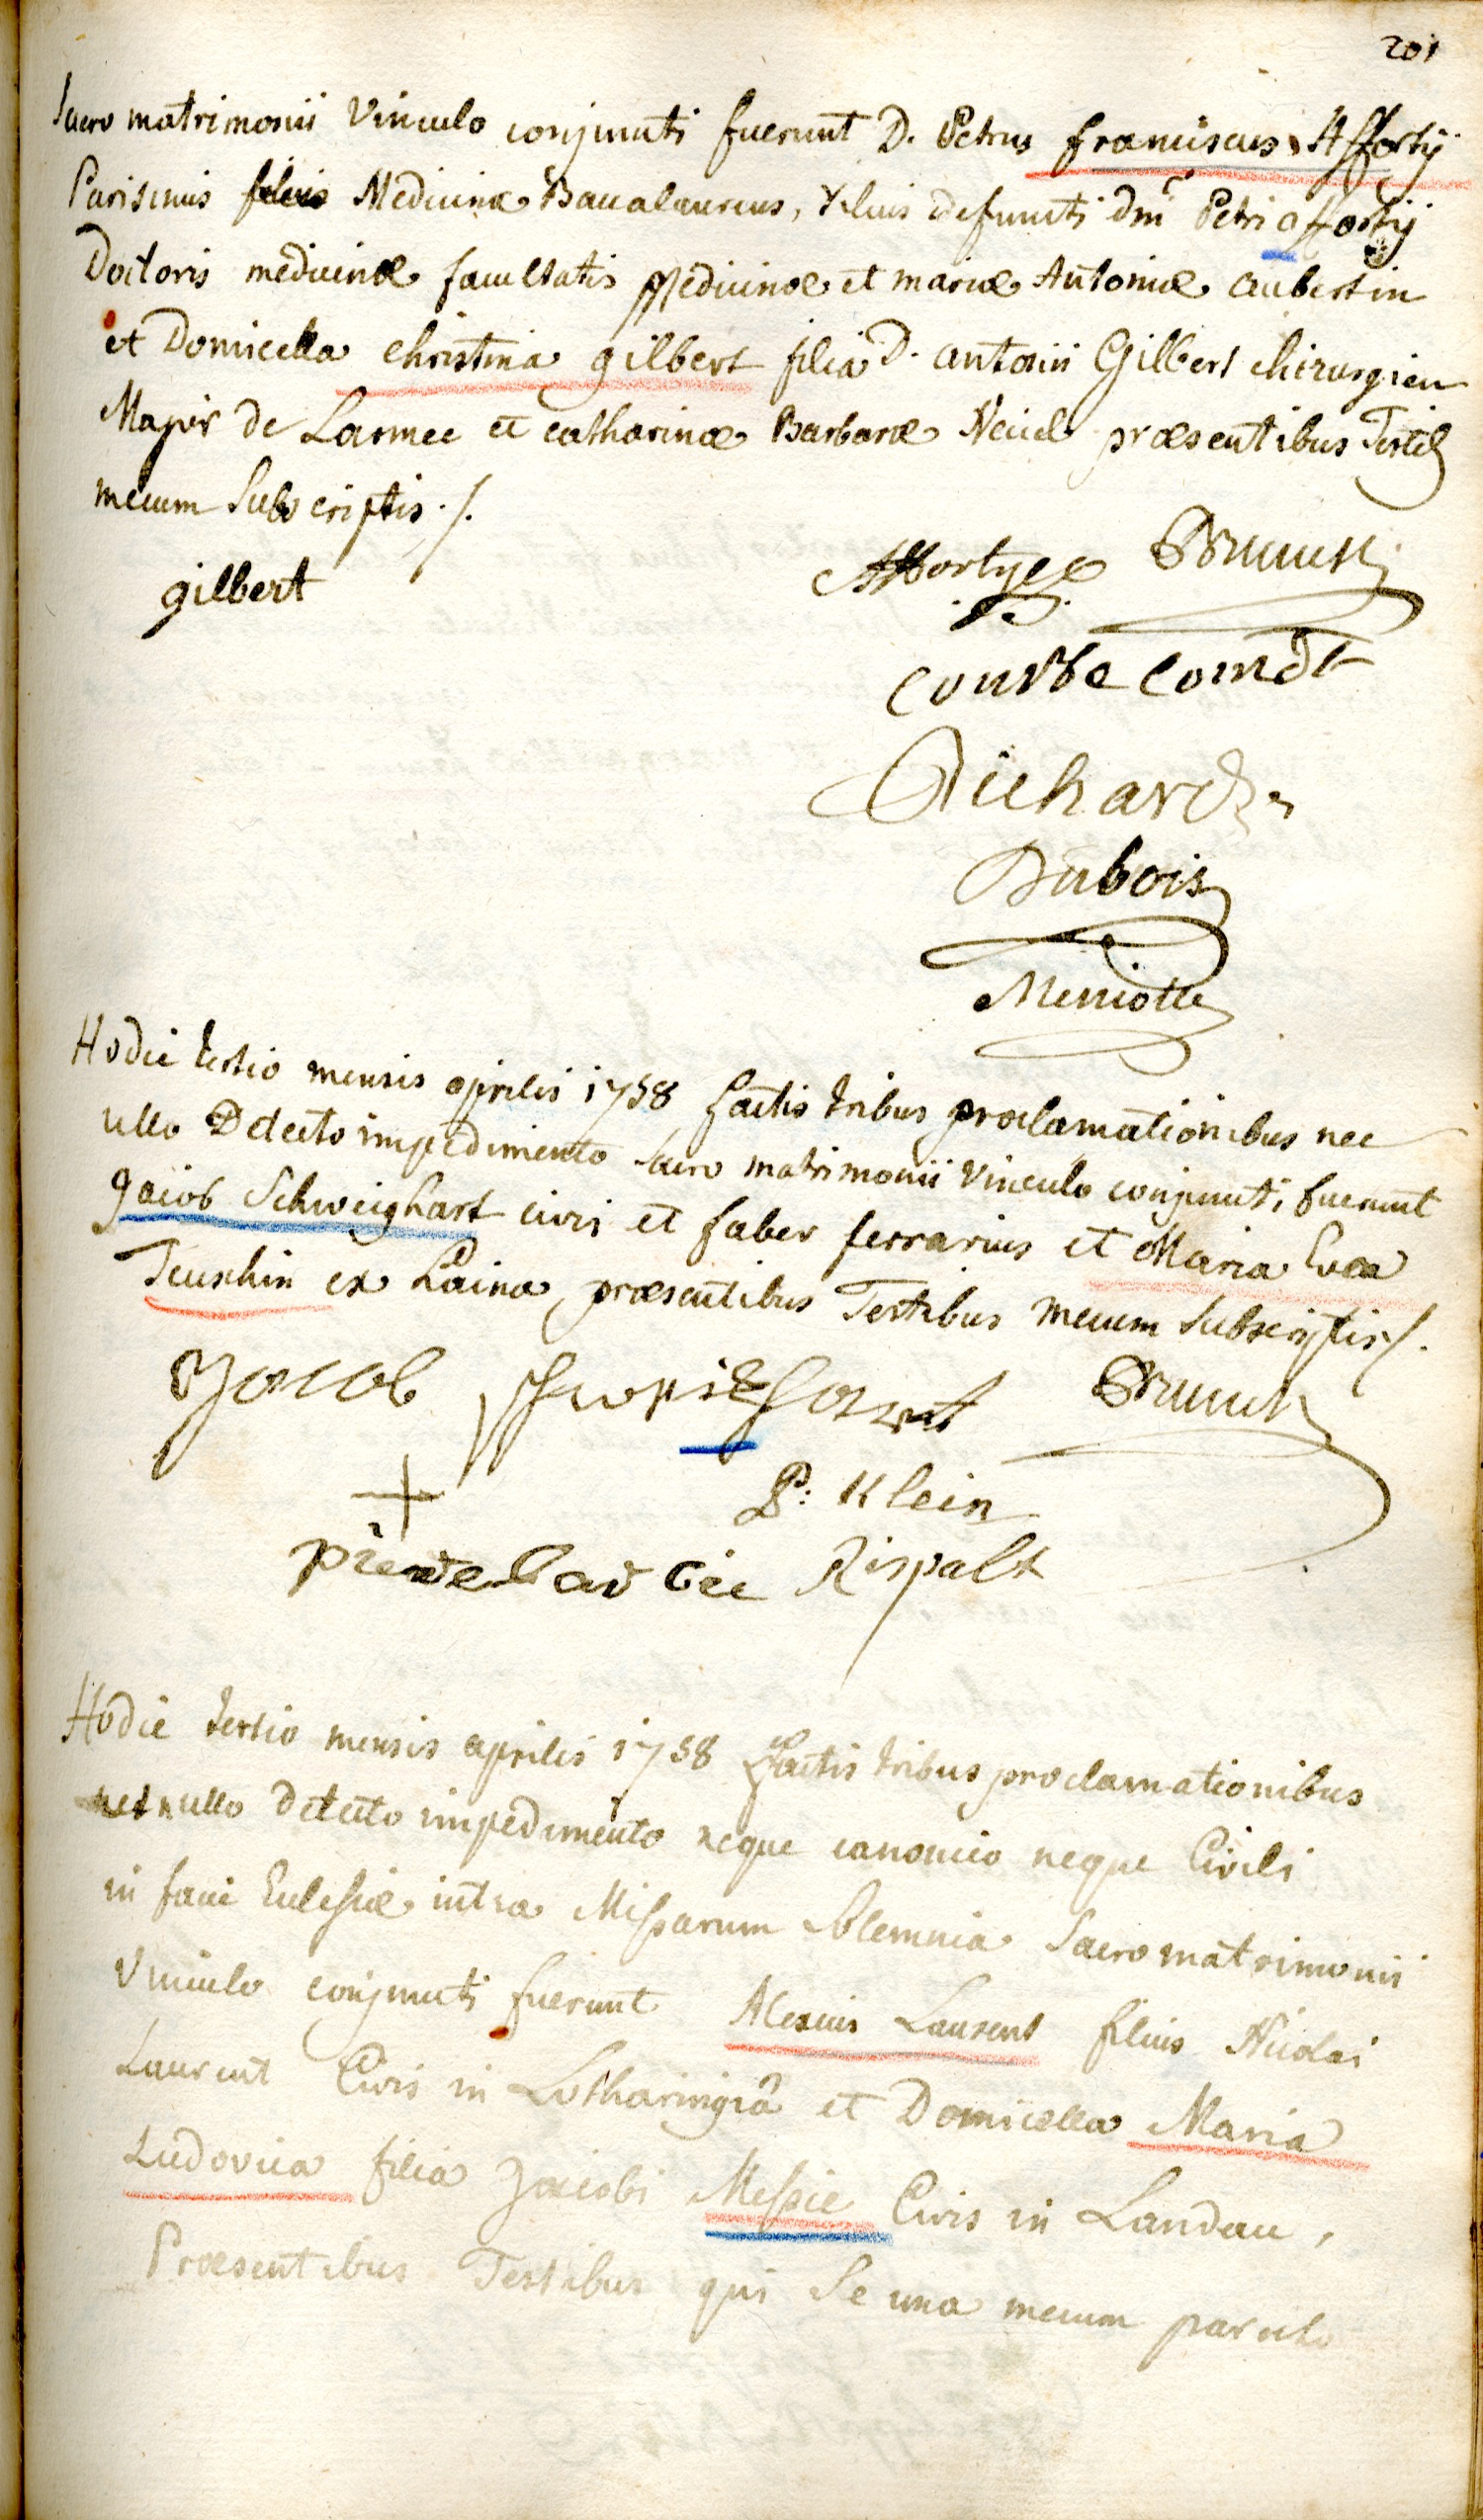 201
Sacro matrimonii Vinculo conjuncti fuerunt D. Petrus franciscus Afforty
Parisinus filius Medicinæ Baccalaureus, filius defuncti dni Petri afforty
Doctoris medicinæ facultatis Medicinæ et mariæ Antoniæ aubertin
et Domicella christina gilbert filia D. antonii Gilbert chirurgien
Major de Larmee et catharinæ Barbaræ præsentibus Testib
mecum Subscriptis ./.
gilbert
Affortye Brunck
Courbe Comdt
Richard
Dubois
Meniolle
Hodie tertio mensis aprilis 1758 factis tribus proclamationibus nec
ullo Detecto impedimento sacro matrimonii Vinculo conjuncti fuerunt
Jacob Schweighart civis et faber ferrarius et Maria Eva
Teuschin ex Laina, præsentibus Testibus mecum Subscriptis ./.
Jacob Schweighart Brunck
+ P: Klein
pierre Rispalt
Hodie tertio mensis aprilis 1758 factis tribus proclamationibus
nullo detecto impedimento neque canonico neque Civili
in facie Eclesiæ intra Missarum Solemnia Sacro matrimonii
Vinculo conjuncti fuerunt Alexius Laurent filius Nicolai
Laurent Civis in Lotharingiâ et Domicella Maria
Ludovica filia Jacobi Messie Civis in Landau,
Præsentibus Testibus qui Se una mecum